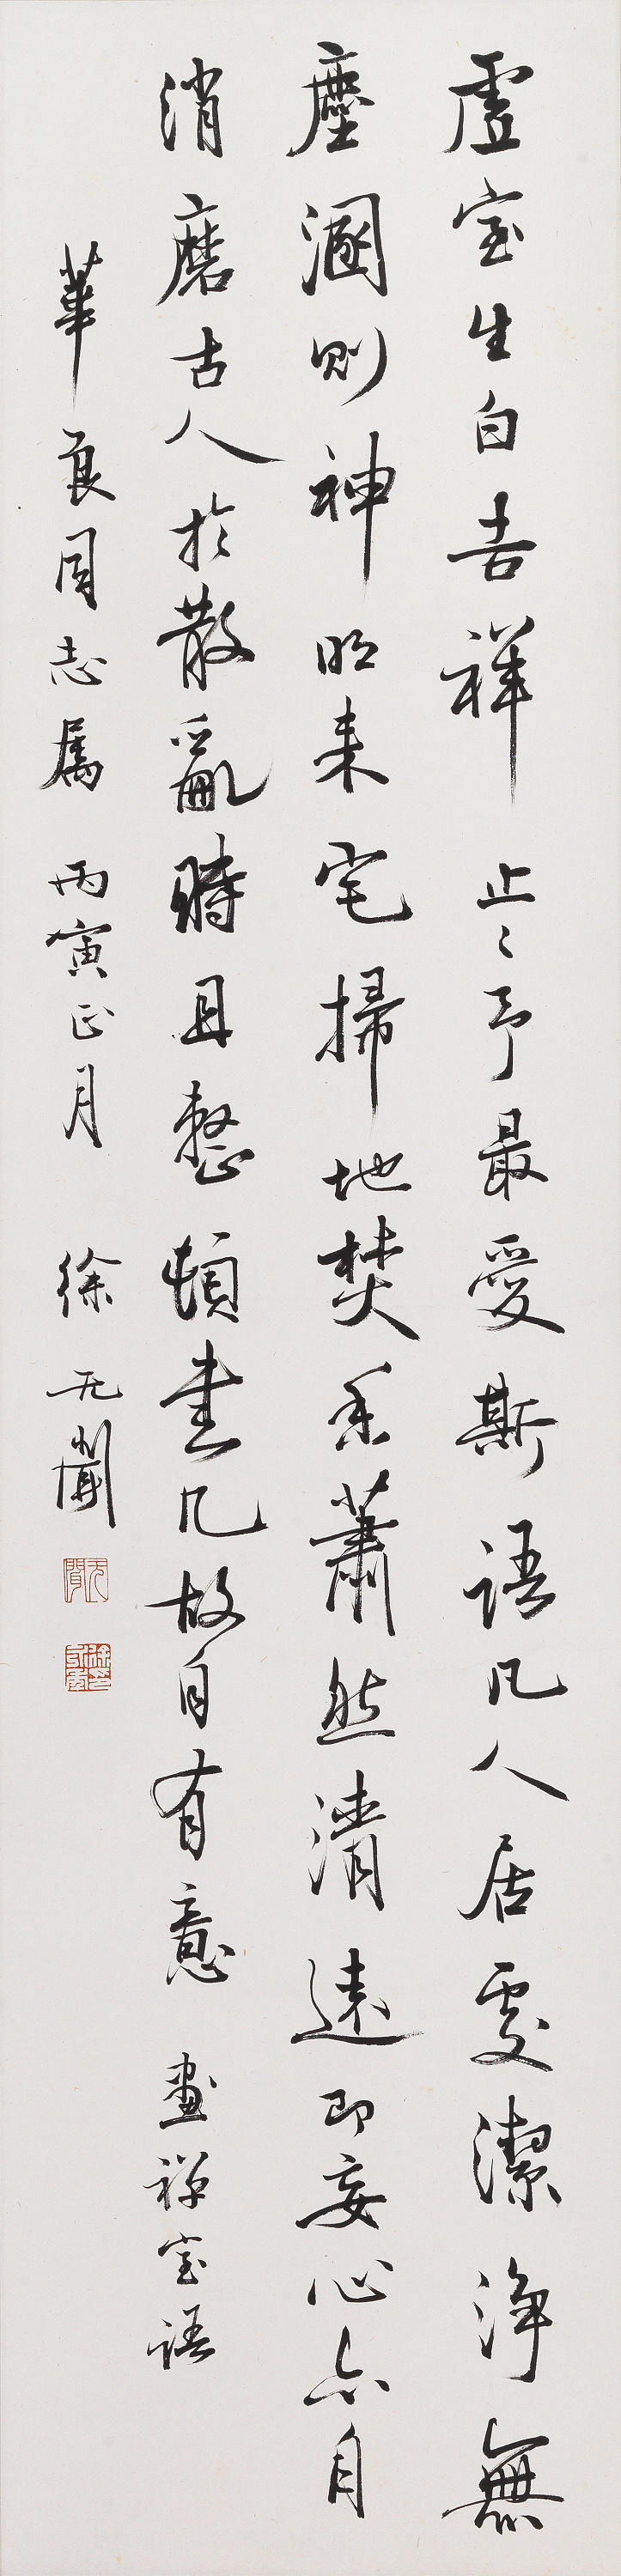 虛室生白吉祥止々予最愛斯語凡人居處潔淨無
塵溷則神明来宅掃地焚香蕭然清遠即妄心亦自
消磨古人於散亂時且整頓書几故自有意畫禪室語
華良同志属丙寅正月徐无聞
无聞